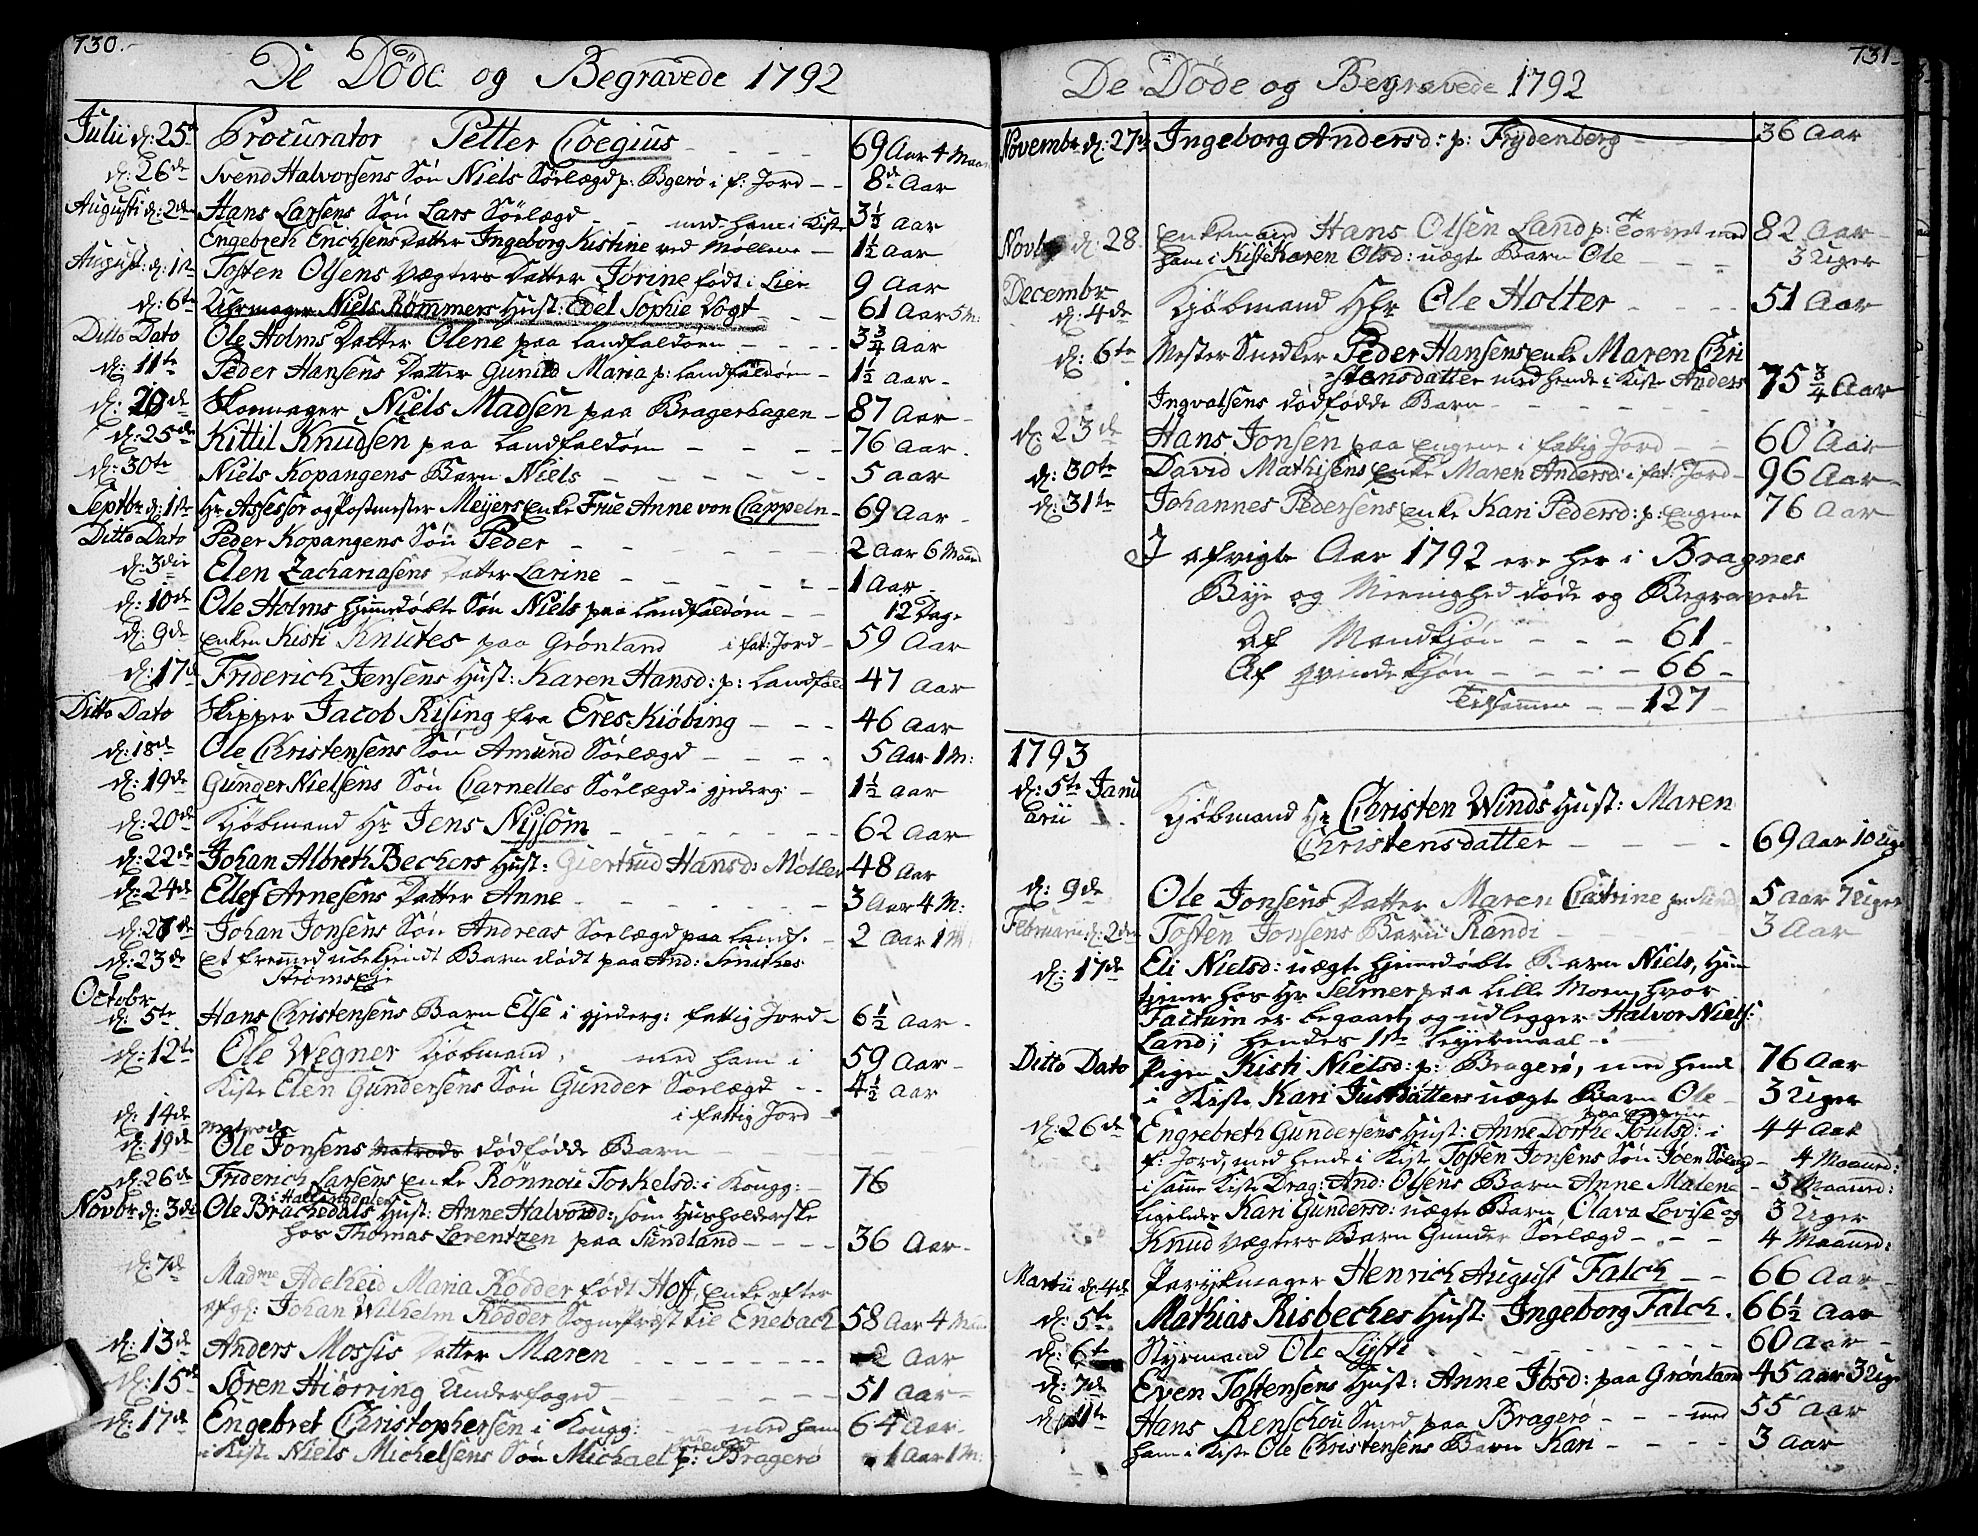 730.
De Døde og Begravede 1792
Julii d: 25de Procurator Petter Coegius - - - - 69 Aar 4 Maan
d: 26de Svend Halvorsens Søn Niels Sørlægd p: Bgerø i f: Jord - - 8de Aar
Augusti d: 2den Hans Larsens Søn Lars Sørlægd - - med ham i Kiste 3½ Aar
Engebreth Erichsens Datter Ingeborg Kistine ved Møllene - 1½ Aar
August: d: 1ste Tosten Olsens Vægters Datter Jørine født i Lier 9 Aar
d: 6te Uhrmager Niels Rømmers Hust: Edel Sophie Vogt - - - 61 Aar 5 M:
Ditto Dato Ole Holms Datter Olene paa Landfaldøen - - - - 3¾ Aar
d: 11te Peder Hansens Datter Gunild Maria p: Landfaldøen - 1½ Aar -
d: 20de Skomager Niels Madsen paa Bragerhagen - 87 Aar -
d: 25de Kittil Knudsen paa Landfaldøen - - - - 76 Aar.
d: 30te Niels Kopangens Barn Niels - - - - - 5 Aar
Septbr d: 1ste Hr Assessor og Postmester Meijers Enke Frue Anne von Cappeln - 69 Aar -
Ditto Dato Peder Kopangens Søn Peder - - - - - 2 Aar 6 Maand
d: 3die Elen Zachariasens Datter Larine - - - - - 1 Aar
d: 10de Ole Holms hjemedøbte Søn Niels paa Landfaldøen - - 12 Dage
d: 9de Enken Kisti Knutes paa Grønland i fat: Jord - 59 Aar
d: 17de Friderich Jensens Hust: Karen Hansd: p: Landfald 47 Aar
Ditto Dato Skipper Jacob Rising fra Eres Kiøbing - - - 46 Aar
d: 18de Ole Christensens Søn Amund Sørlægd - - - - 5 Aar 1 M:
d: 19de Gunder Nielsens Søn Carnelles Sørlægd i gjerderg: - 1½ Aar
d: 20de Kjøbmand Hr Jens Nijsom - - - - - - 62 Aar
d: 22de Johan Albreth Bechers Hust: Giertrud Hansd: Møller 48 Aar
d: 24de Ellef Arnesens Datter Anne - - - - - - 3 Aar 4 M:
d: 27de Johan Jonsens Søn Andreas Sørlægd paa Landf. - 2 Aar 1 M:
d: 23de Et fremmed ubekjendt Barn dødt paa And: Smithes
Strømsøje
Octobr
d: 5te Hans Christensens Barn Else i gjerderg: fattig Jord - 6½ Aar -
d: 12te Ole Wegner Kjøbmand, med ham i 59 Aar -
Kiste Elen Gundersens Søn Gunder Sørlægd - - 4½ Aar
d: 14de i fattig Jord -
matrods
d: 19de Ole Jonsens dødfødde Barn - -
d: 26de Friderich Larsens Enke Rønnou Torkelsd: i Kongg: - 76
i Hallingdalen
Novbr d: 3de Ole Brachedals Hust: Anne Halvordd: som Husholderske
hos Thomas Lorentzen paa Sundland - - - - 36 Aar -
d: 7de Madme Adelheid Maria Rødder født Hoff, Enke efter
afg: Johan Wilhelm Rødder Sogneprest til Enebach 58 Aar 4 M
d: 13de Anders Mossis Datter Maren - - - - - - - - 2 Aar
d: 15de Søren Hiørring Underfoged - - - - - 51 Aar -
d: 17de Engebret Christophersen i Kongg: - - med ham 64 Aar -
i Kiste Niels Michelsens Søn Michael p: Bragerø 1 Aar 1 M:
731
De Døde og Begravede 1792
Novembr d: 27de Ingeborg Andersd: p: Frydenberg - - 36 Aar
Novbr d: 28. Enkemand Hans Olsen Land p: Torvet med 82 Aar -
ham i Kiste Karen Olsd: uægte Barn Ole - - - 3 Uger
Decembr
d: 4de Kjøbmand Hr Ole Holter - - - - 51 Aar
d: 6te Mester Snedker Peder Hansens Enke Maren Chri
stensdatter med hende i Kiste Anders 75¾ Aar
Ingvalsens dødfødde Barn - - - - - -
d: 23de Hans Jonsen paa Engene i fattig Jord - - 60 Aar
d: 30te David Mathisens Enke Maren Andersd: i fat: Jord - 96 Aar -
d: 31te Johannes Pedersens Enke Kari Pedersd: p: Engene 76 Aar
I afvigte Aar 1792 ere her i Bragnes
Bye og Mienighed døde og Begravede
Af Mandkjøn - - - 61 -
Af Qvindekjøn - - - - 66 -
Tilsammen - - 127 -
1793
d: 5te Janu
arii - Kjøbmand Hr Christen Winds Hust: Maren
Christensdatter - - - - 69 Aar 10 Uger
d: 9de Ole Jonsens Datter Maren Catrine p: Sund 5 Aar 7 Uger
Februarii d: 2den Tosten Jonsens Barn Randi - 3 Aar
d: 17de Eli Nielsd: uægte hjemedøbte Barn Niels, Hun
tjener hos Hr Selmer paa Lille Moen, hvor
Factum er begaaet, og udlegger Halvor Niels:
Land; hendes 1ste Lejermaal - i
Ditto Dato Pigen Kisti Nielsd: p: Bragerø, med hende 76 Aar
i Kiste Kari Justdatters uægte Barn Ole - 3 Uger
paa Engene
d: 26de Engebreth Gundersens Hust: Anne Dorthe Poulsd: i 44 Aar
f: Jord, med hende i Kiste Tosten Jonsens Søn Joen Sølægd - 4 Maaned:
i samme Kiste Drag: And: Olsens Barn Anne Malene - 3 Maaned:
Ligeledes Kari Gundersd: uægte Barn Clava Lovise og 3 Uger
Knud Vægters Barn Gunder Sørlægd - - - 4 Maaned:
Martii d: 4de Parykmager Henrich August Falch - - 66 Aar -
d: 5te Mathias Risbeches Hust: Ingeborg Falch. 66½ Aar
d: 6te Styrmand Ole Lysti - - - - - - - 60 Aar -
d: 7de Even Tostensens Hust: Anne Ibsd: paa Grønland 45 Aar 3 Uge
d: 11te Hans Renschou Smed paa Bragerø - - - med 55 Aar
ham i Kiste Ole Christensens Barn Kari - - - - 3 Aar